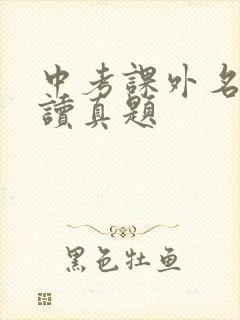 中考課外名
讀真題
黑色牡鱼